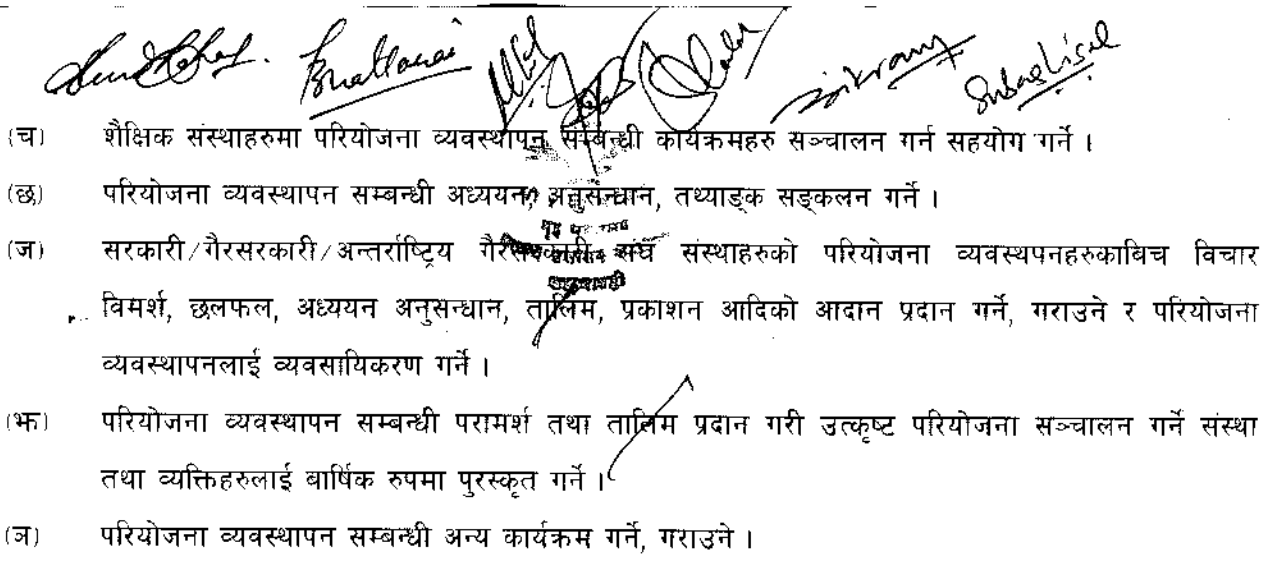 (च) शैक्षिक संस्थाहरुमा परियोजना व्यवस्थापन सम्बन्धी कार्यक्रमहरु सञ्चालन गर्न सहयोग गर्ने ।
(छ) परियोजना व्यवस्थापन सम्बन्धी अध्ययन, अनुसन्धान, तथ्याङ्क सङ्कलन गर्ने ।
(ज) सरकारी/गैरसरकारी/अन्तर्राष्ट्रिय गैरसरकारी संघ संस्थाहरुको परियोजना व्यवस्थपनहरुकाबिच विचार
विमर्श, छलफल, अध्ययन अनुसन्धान, तालिम, प्रकाशन आदिको आदान प्रदान गर्ने, गराउने र परियोजना
व्यवस्थापनलाई व्यवसायिकरण गर्ने ।
(झ) परियोजना व्यवस्थापन सम्बन्धी परामर्श तथा तालिम प्रदान गरी उत्कृष्ट परियोजना सञ्चालन गर्ने संस्था
तथा व्यक्तिहरुलाई बार्षिक रुपमा पुरस्कृत गर्ने ।
(ञ) परियोजना व्यवस्थापन सम्बन्धी अन्य कार्यक्रम गर्ने, गराउने ।